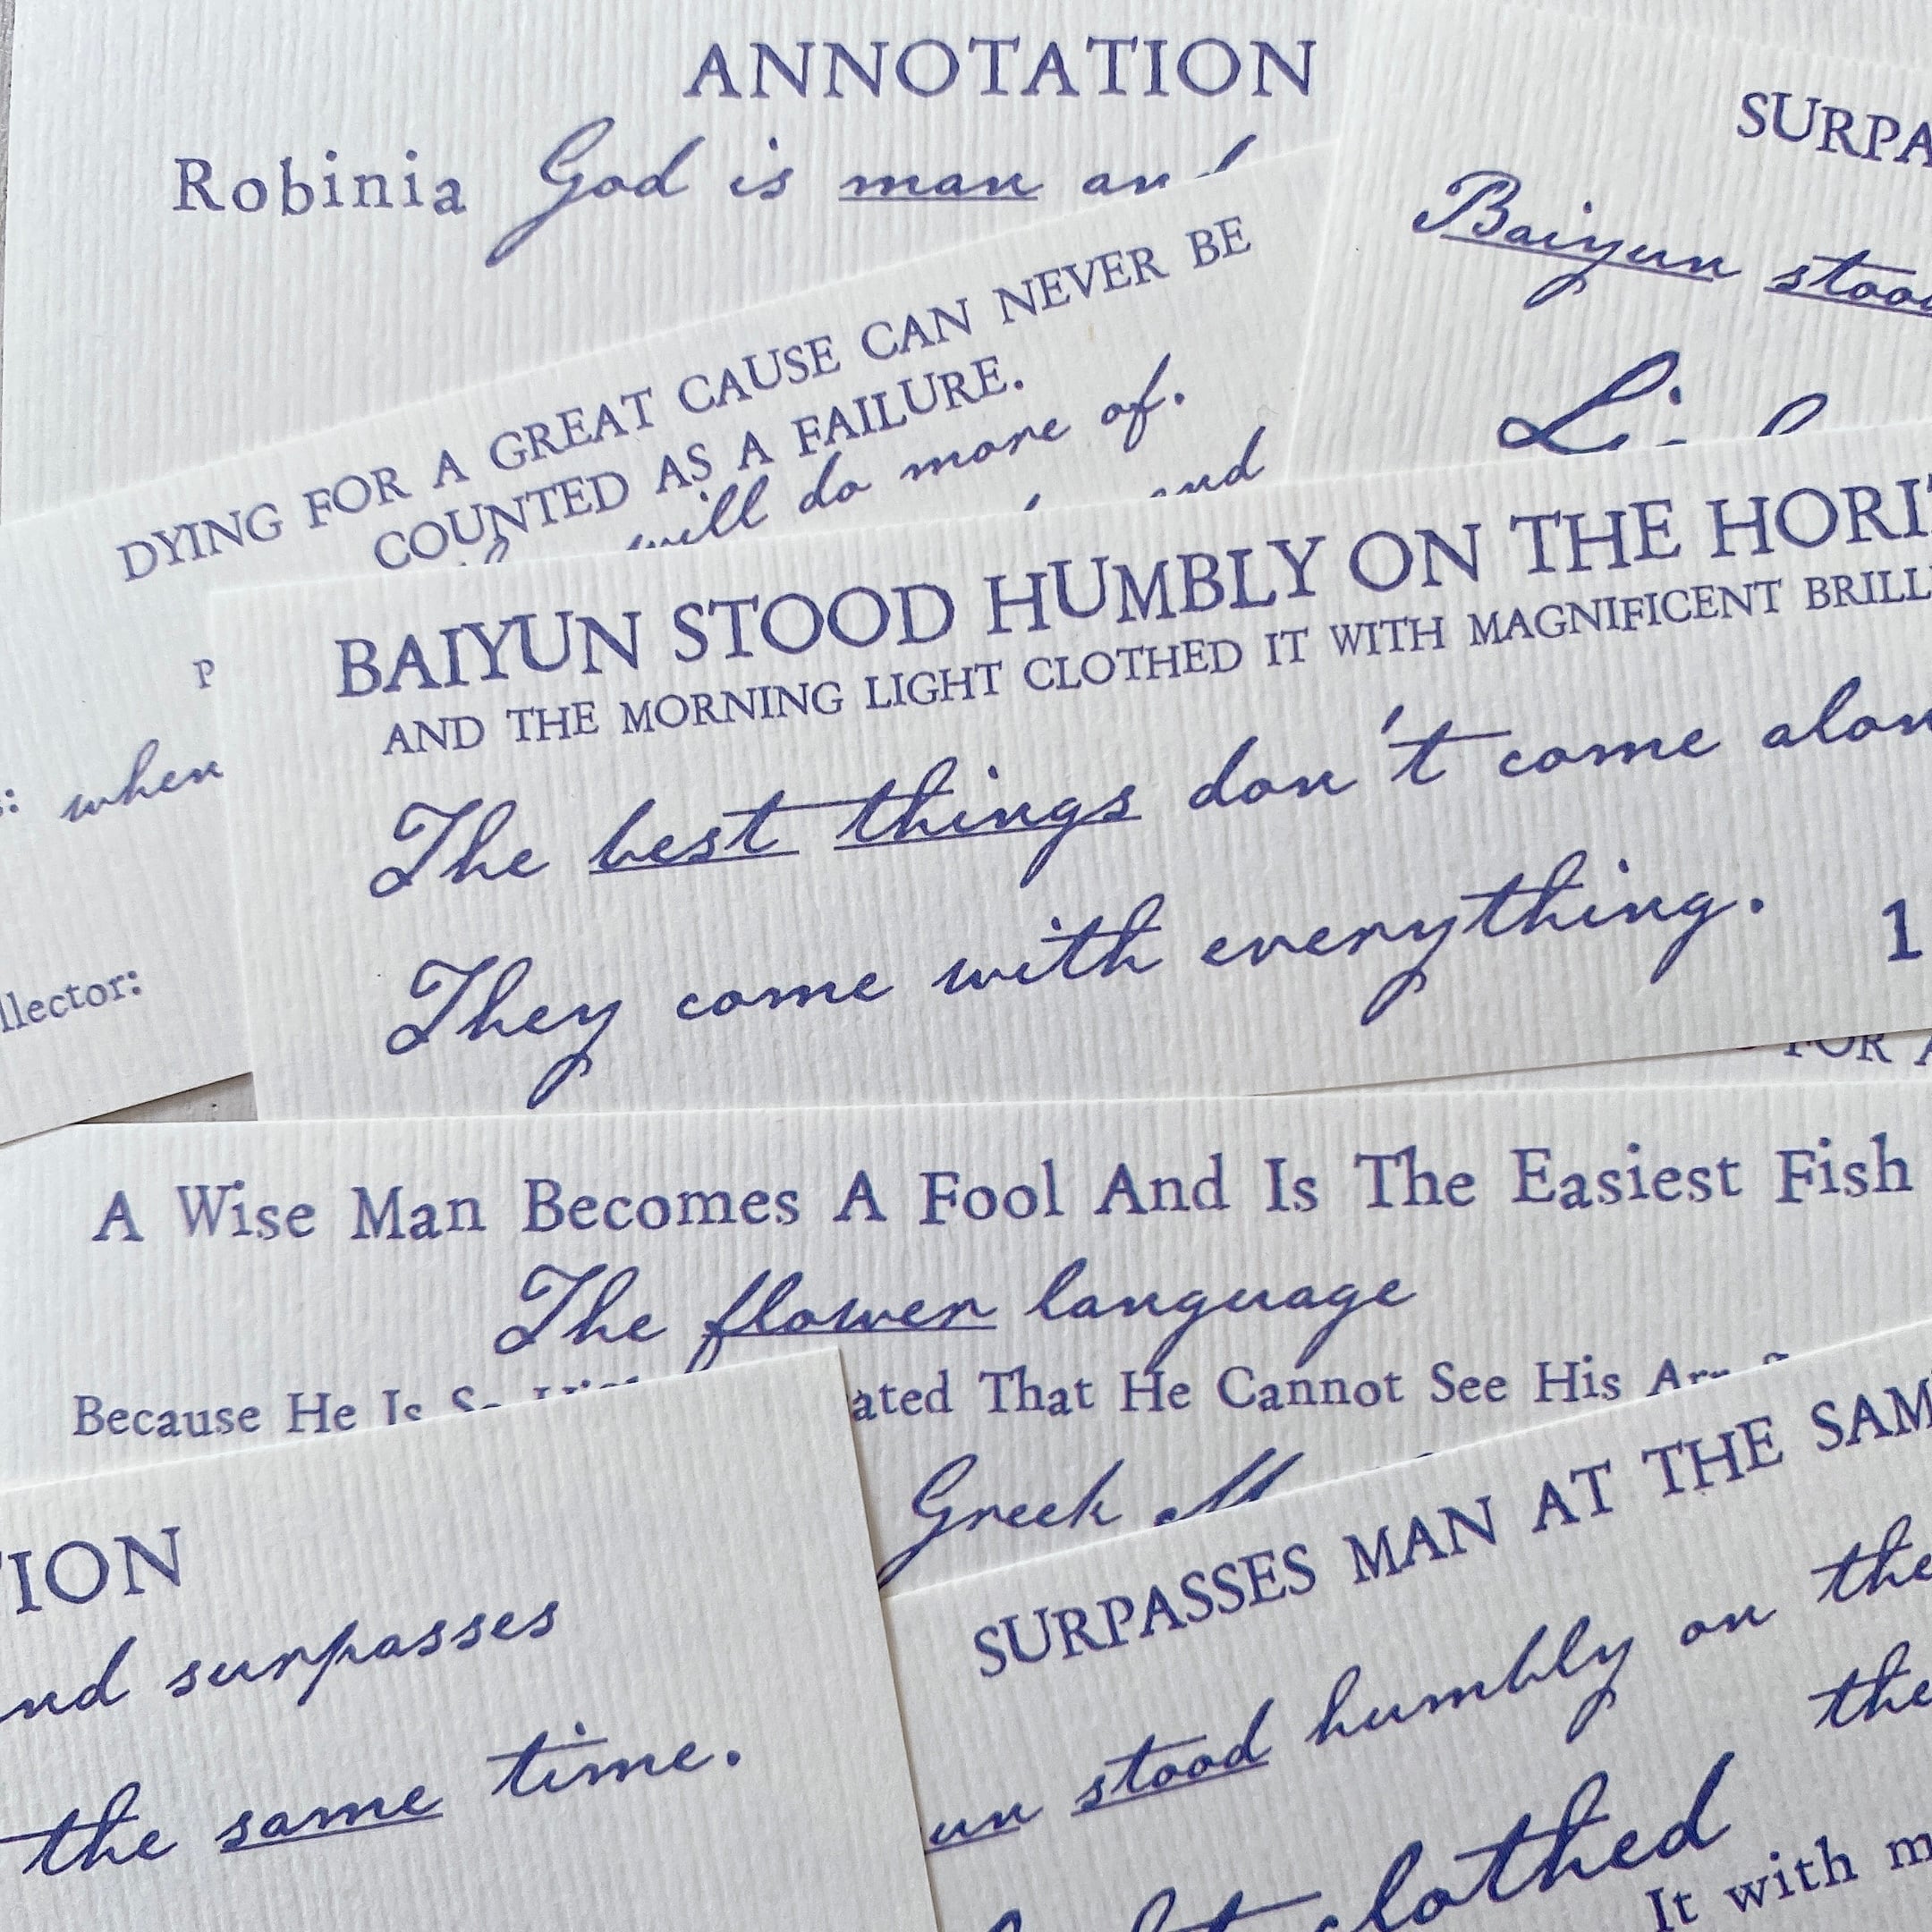 ANNOTATION
Robinia God is man and
SURPA
Baiyun stood
DYING FOR A GREAT CAUSE CAN NEVER BE
COUNTED AS A FAILURE.
will do more of.
and
P
when
llector:
BAIYUN STOOD HUMBLY ON THE HORI
AND THE MORNING LIGHT CLOTHED IT WITH MAGNIFICENT BRILL
The best things don't come alon
They come with everything.
1
FOR A
A Wise Man Becomes A Fool And Is The Easiest Fish
The flower language
Because He Is So ated That He Cannot See His
Greek
TION
nd surpasses
the same time.
SURPASSES MAN AT THE SAM
un stood humbly on the
the
clothed
It with m